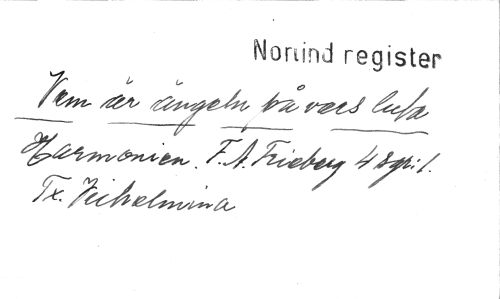 Norlind register
Vem är ängeln på vers
Harmonien. F.A. Frieberg 4
Tx. Wilhelmina